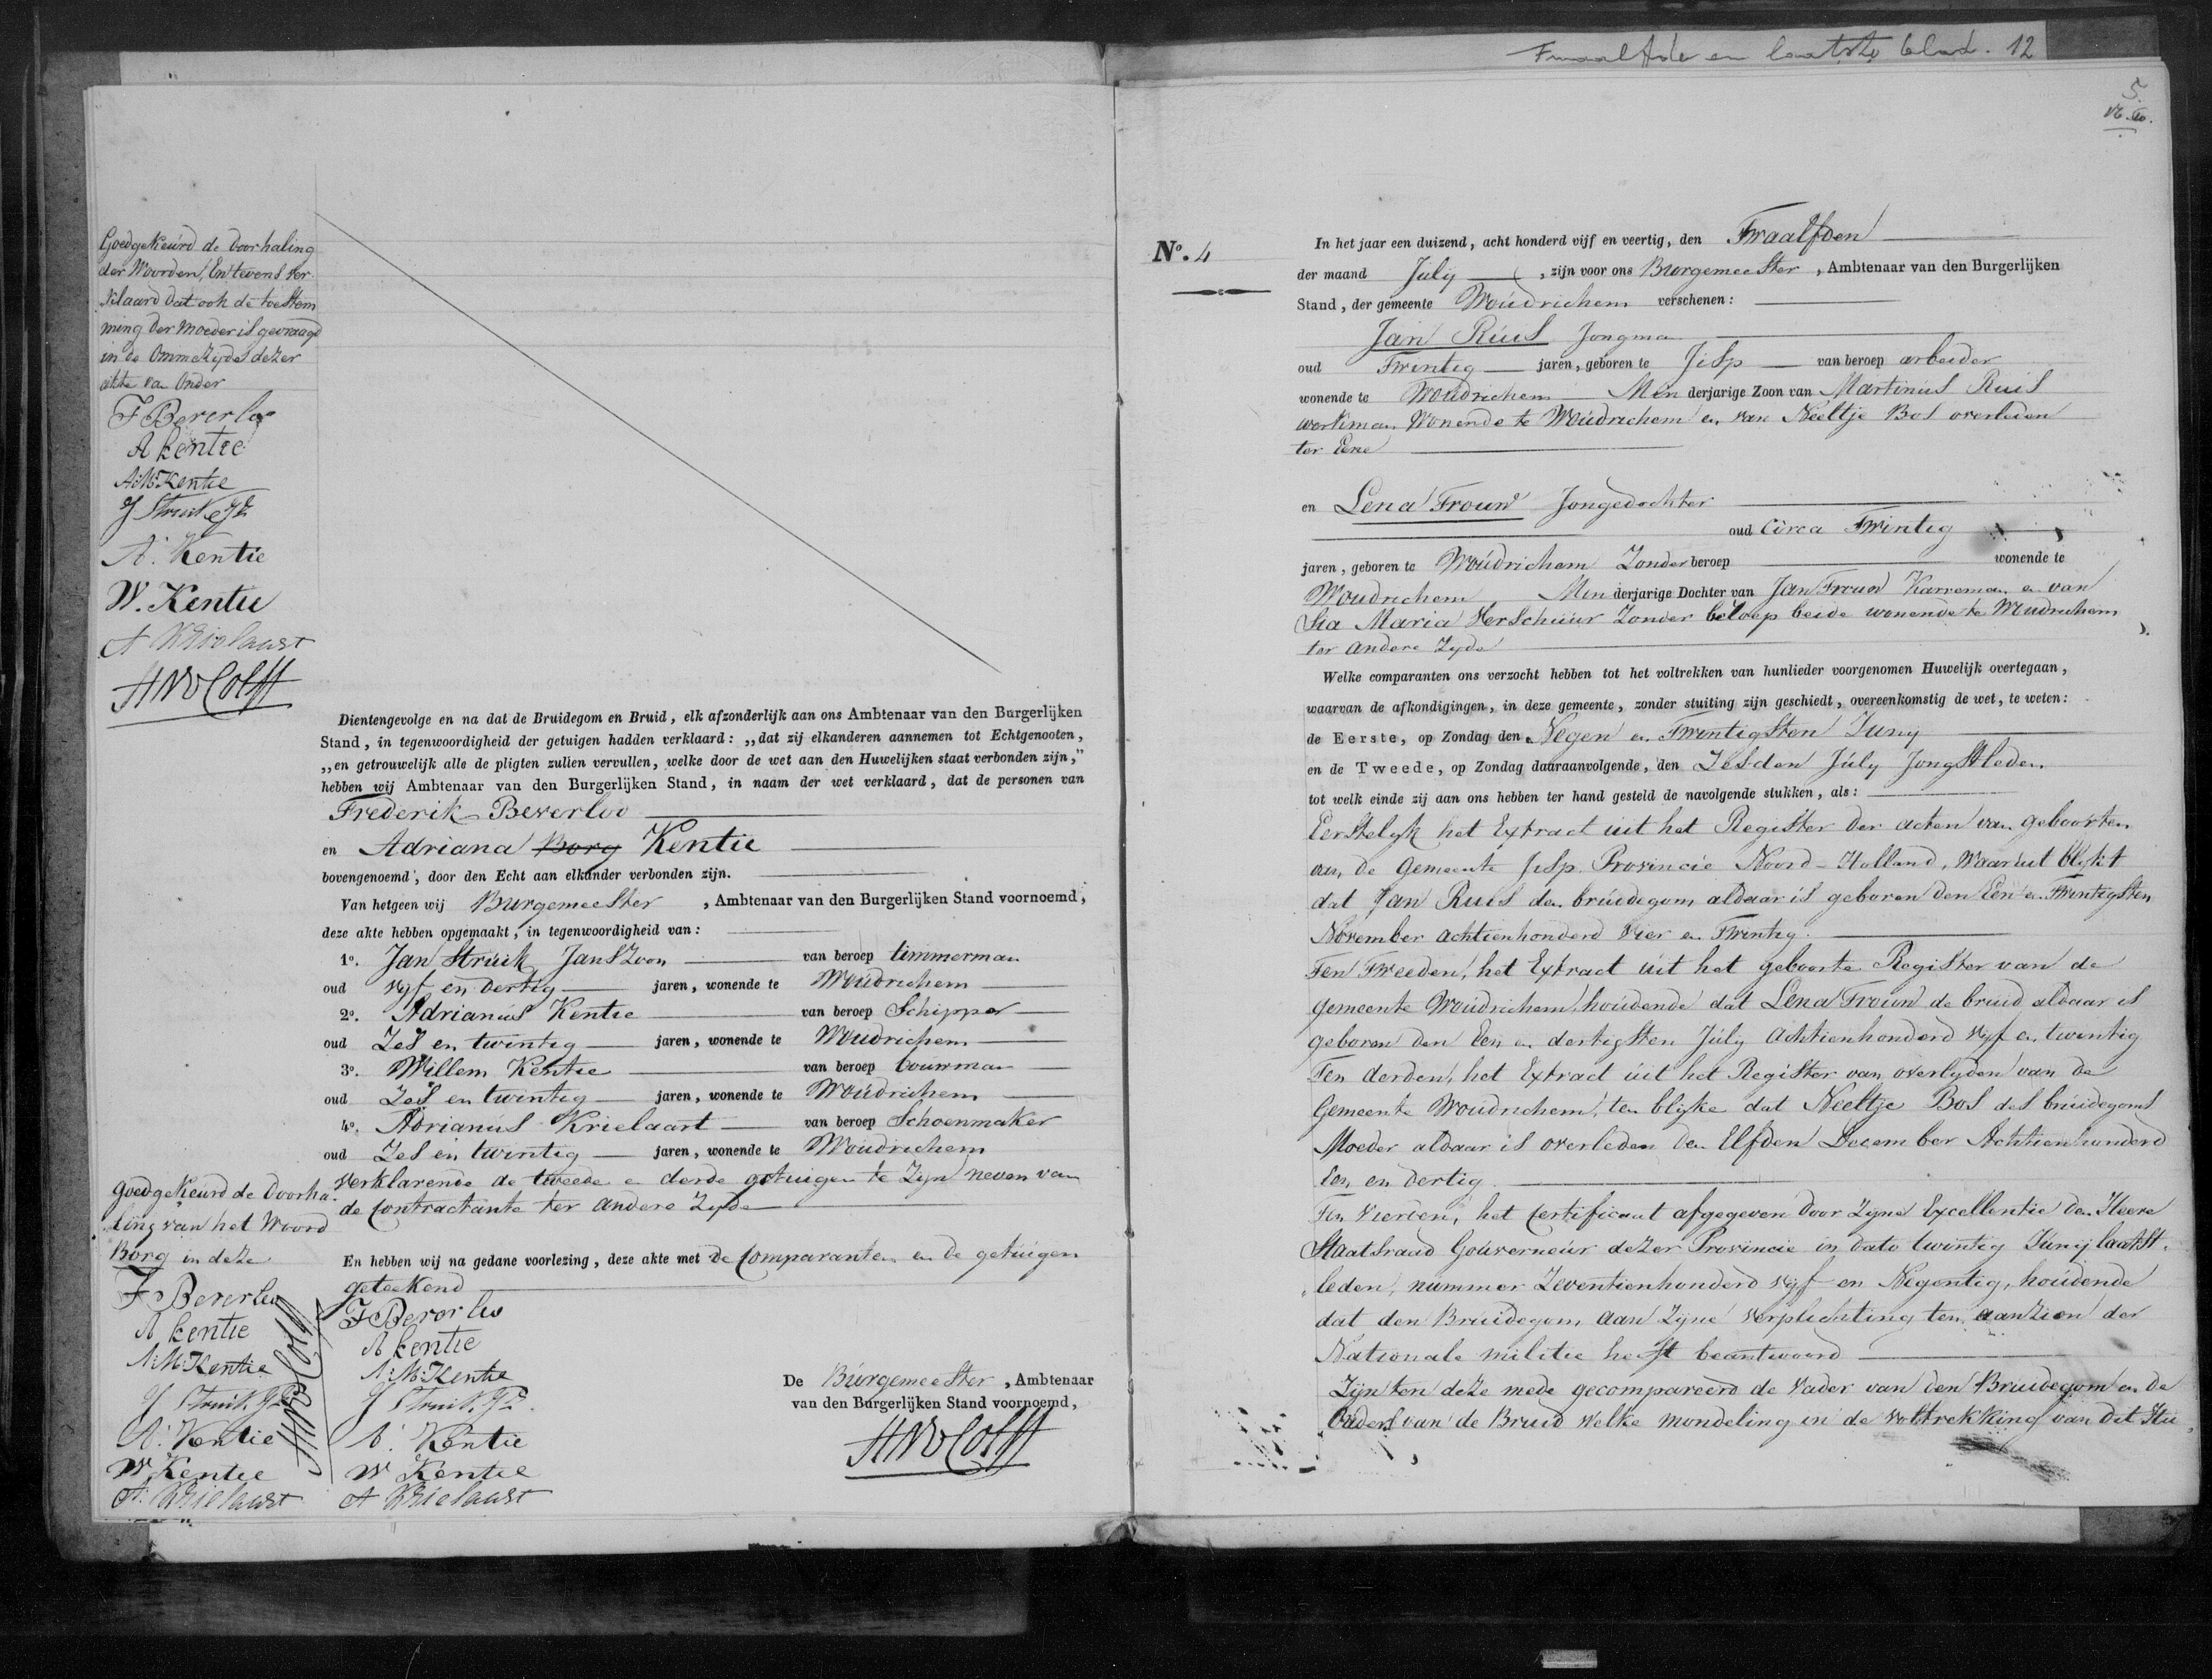 Goedgekeurd de doorhaling
der Woorden, En tevens ver
klaard dat ook de toestem
ming der Moeder is gevraagd
in de Ommezyde dezer
akte van Onder
F Beverloo
A kentie
A: M: Kentie
J Struik Jz
A. Kentie
W. Kentie
A Krielaart
Dientengevolge en na dat de Bruidegom en Bruid, elk afzonderlijk aan ons Ambtenaar van den Burgerlijken
Stand, in tegenwoordigheid der getuigen hadden verklaard: „dat zij elkanderen aannemen tot Echtgenooten,
„en getrouwelijk alle de pligten zullen vervullen, welke door de wet aan den Huwelijken staat verbonden zijn,”
hebben wij Ambtenaar van den Burgerlijken Stand, in naam der wet verklaard, dat de personen van
Frederik Beverloo
en Adriana Borg Kentie
bovengenoemd, door den Echt aan elkander verbonden zijn.
Van hetgeen wij Burgemeester, Ambtenaar van den Burgerlijken Stand voornoemd,
deze akte hebben opgemaakt, in tegenwoordigheid van:
1o. Jan Struik Janszoon van beroep timmerman
oud vyf en dertig jaren, wonende te Woudrichem
2o. Adrianus Kentie van beroep Schipper
oud Zes en twintig jaren, wonende te Woudrichem
3o. Willem Kentie van beroep bouwman
oud Zes en twintig jaren, wonende te Woudrichem
4o. Adrianus Krielaart van beroep Schoenmaker
oud Zes en twintig jaren, wonende te Woudrichem
verklarende de tweede en derde getuigen te Zyn neven van
de Contractante ter andere Zyde
En hebben wij na gedane voorlezing, deze akte met de Comparanten en de getuigen
geteekend
F Beverloo
A kentie
A: M: Kentie
J Struik Jz.
A. Kentie
W Kentie
A Krielaart
De Burgemeester, Ambtenaar
van den Burgerlijken Stand voornoemd,
goedgekeurd de doorha-
ling van het Woord
Borg in deze
F Beverloo
A kentie
A: M: Kentie
J Struik Jz
A. Kentie
W Kentie
A. Krielaart
Twaalfde en laatste blad. 12
5.
No. 4
In het jaar een duizend, acht honderd vijf en veertig, den Twaalfden
der maand July, zijn voor ons Burgemeester, Ambtenaar van den Burgerlijken
Stand, der gemeente Woudrichem verschenen:
Jan Ruis Jongman
oud Twintig jaren, geboren te Jisp van beroep arbeider
wonende te Woudrichem Min derjarige Zoon van Martinus Ruis
werkman Wonende te Woudrichem en van Neeltje Bos overleden
ter Eene
en Lena Trouw Jongedochter
oud Circa Twintig
jaren, geboren te Woudrichem Zonder beroep wonende te
Woudrichem Min derjarige Dochter van Jan Trouw Karreman en van
Sia Maria Verschuur Zonder beroep beide wonende te Woudrichem
ter andere Zyde
Welke comparanten ons verzocht hebben tot het voltrekken van hunlieder voorgenomen Huwelijk overtegaan,
waarvan de afkondigingen, in deze gemeente, zonder stuiting zijn geschiedt, overeenkomstig de wet, te weten:
de Eerste, op Zondag den Negen en Twintigsten Juny
en de Tweede, op Zondag daaraanvolgende, den Zesden July Jongstleden
tot welk einde zij aan ons hebben ter hand gesteld de navolgende stukken, als:
Eerstelyk het Extract uit het Register der acten van geboorten
van de Gemeente Jisp Provincie Noord-Holland, Waaruit blykt
dat Jan Ruis de bruidegom aldaar is geboren den Een en Twintigsten
November achtienhonderd Vier en Twintig.
Ten Tweeden, het Extract uit het geboorte Register van de
gemeente Woudrichem, houdende dat Lena Trouw de bruid aldaar is
geboren den Een en dertigsten July Achtienhonderd vyf en twintig
Ten derden, het Extract uit het Register van overlyden van de
Gemeente Woudrichem, ten blyke dat Neeltje Bos des bruidegoms
Moeder aldaar is overleden den Elfden December Achtienhonderd
Een en dertig
Ten Vierden, het Certificaat afgegeven door Zyne Excellentie den Heere
Staatsraad Gouverneur dezer Provincie in dato twintig Juny laatst-
leden, nummer Zeventienhonderd vyf en Negentig, houdende
dat den Bruidegom aan Zyne verplichting ten aanzien der
Nationale militie heeft beantwoord
Zijn ten deze mede gecompareerd de Vader van den Bruidegom en de
Ouders van de Bruid welke mondeling in de voltrekking van dit Hu-